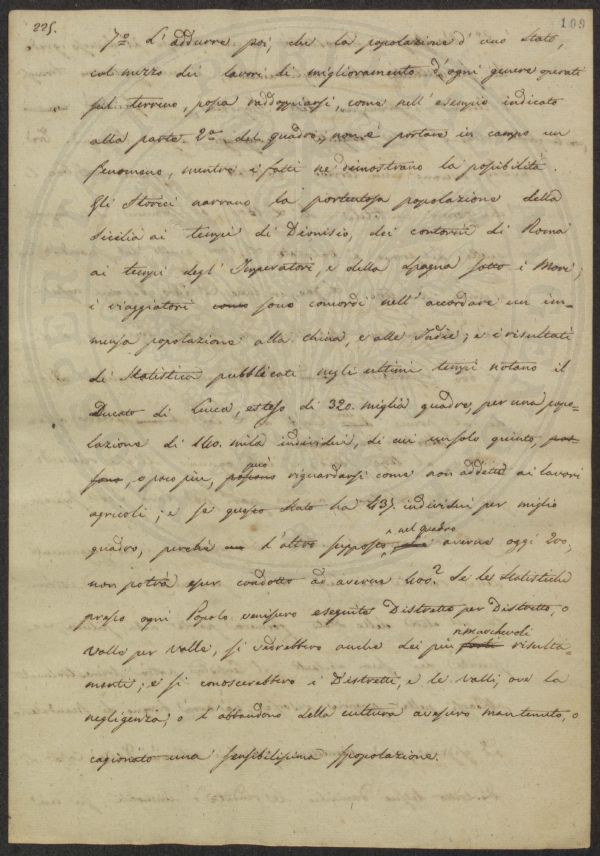 225.
109
7.º L'addurre poi, che la popolazione d'uno Stato,
col mezzo dei lavori di miglioramento d'ogni genere operati
sul terreno, possa raddoppiarsi, come nell'esempio indicato
alla parte 2.ª del quadro, non è portare in campo un
fenomeno, mentre i fatti ne dimostrano la possibilità.
Gli Storici narrano la portentosa popolazione della
Sicilia ai tempi di Dionisio, dei contorni di Roma
ai tempi degl'Imperatori, e della Spagna sotto i Mori;
i viaggiatori sono concordi nell'accordare un im=
mensa popolazione alla China, e alle Indie; e i risultati
di Statistica pubblicati negli ultimi tempi notano il
Ducato di Lucca, esteso di 320. miglia quadre, per una popo=
lazione di 140. mila individui, di cui un solo quinto, pos=
sono, o poco più, possono può riguardarsi come non addetto ai lavori
agricoli; e se questo Stato ha 437. individui per miglio
quadro, perchè l'altro supposto nel quadro averne oggi 200,
non potrà esser condotto ad averne 400? Se le Statistiche
presso ogni Popolo venissero eseguite Distretto per Distretto, o
valle per valle, si vedrebbero anche dei più forti rimarchevoli risulta=
menti; e si conoscerebbero i Distretti, e le valli, ove la
negligenza, o l'abbandono della cultura avessero mantenuto, o
cagionato una sensibilissima spopolazione.